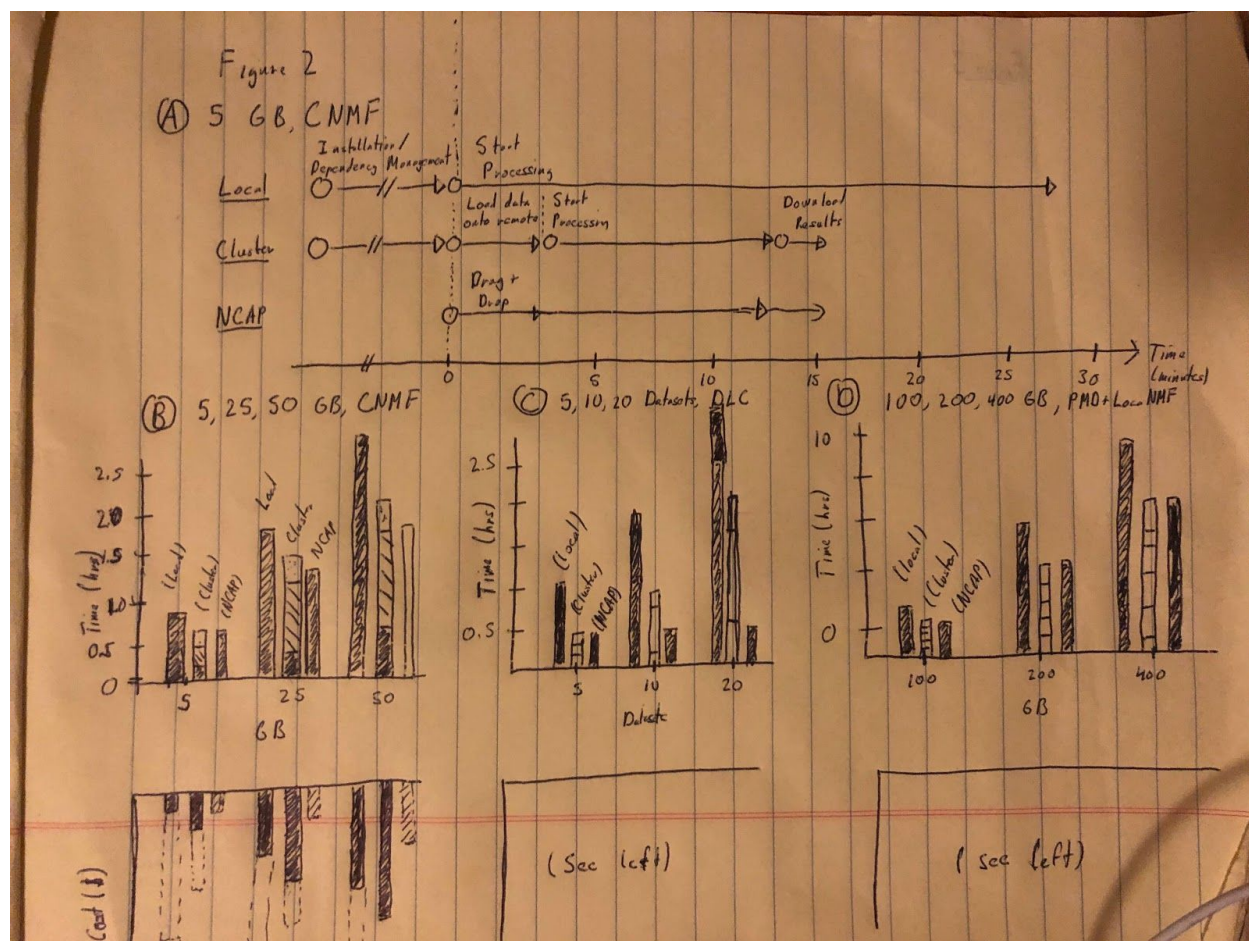 Figure 2
(A) 5 GB, CNMF
Installation/
Dependency Management
Start
Processing
Local
Load data
onto remote
Start
Processin
Download
Results
Cluster
Drag +
Drop
NCAP
0 5 10 15 20 25 30
Time
(minutes)
(B) 5, 25, 50 GB, CNMF
2.5
2.0
1.0
0.5
0
Time (hrs)
(Local)
(Cluster)
(NCAP)
Local
Cluster
NCAP
5 25 50
GB
(C) 5, 10, 20 Datasets, DLC
2.5
0.5
Time (hrs)
(Local)
(Cluster)
(NCAP)
5 10 20
Datasets
(D) 100, 200, 400 GB, PMD + Local NMF
10
0
Time (hrs)
(local)
(Cluster)
(NCAP)
100 200 400
GB
Cost ($)
(See left)
(see left)